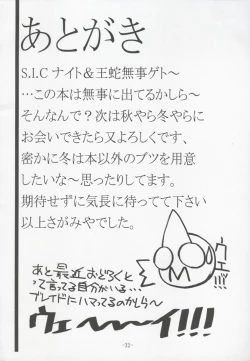 あとがき
S.I.Cナイト&王蛇無事ゲト〜
…この本は無事に出てるかしら〜
そんなんで?次は秋やら冬やらに
お会いできたら又よろしくです、
密かに冬は本以外のブツを用意
したいな〜思ったりしてます。
期待せずに気長に待ってて下さい
以上さがみやでした。
ウェ
あと最近おどろくと
って言ってる自分がいる…
ブレイドにハマってるのかしら〜
ウェ〜〜イ!!!
-32-